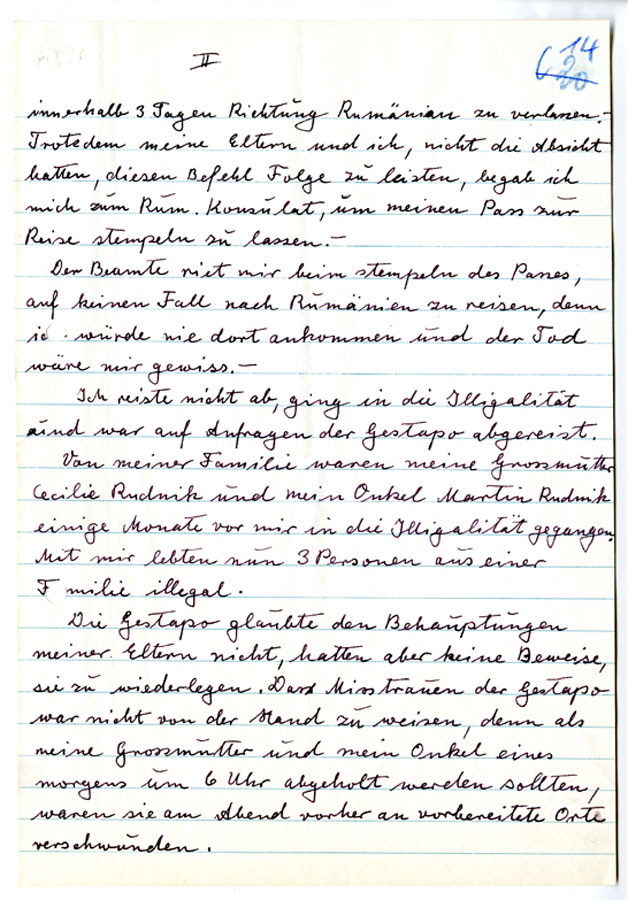 II
14
20
innerhalb 3 Tagen Richtung Rumänian zu verlassen.-
Trotsdem meine Eltern und ich, nicht die Absicht
hatten, diesen Befehl Folge zu leisten, begab ich
mich zum Rum. Konsulat, um meinen Pass zur
Reise stempeln zu lassen.-
Der Beamte riet mir beim stempeln des Passes,
auf keinen Fall nach Rumänien zu reisen, denn
ic würde nie dort ankommen und der Tod
wäre mir gewiss.-
Ich reiste nicht ab, ging in die Illigalität
und war auf Anfragen der Gestapo abgereist.
Von meiner Familie waren meine Grossmutter
Cecilie Rudnik und mein Onkel Martin Rudnik
einige Monate vor mir in die Illigalität gegangen.
Mit mir lebten nun 3 Personen aus einer
F milie illegal.
Die Gestapo glaubte den Behauptungen
meiner Eltern nicht, hatten aber keine Beweise,
sie zu wiederlegen. Das Misstrauen der Gestapo
war nicht von der Hand zu weisen, denn als
meine Grossmutter und mein Onkel eines
morgens um 6 Uhr abgeholt werden sollten,
waren sie am Abend vorher an vorbereitete Orte
verschwunden.